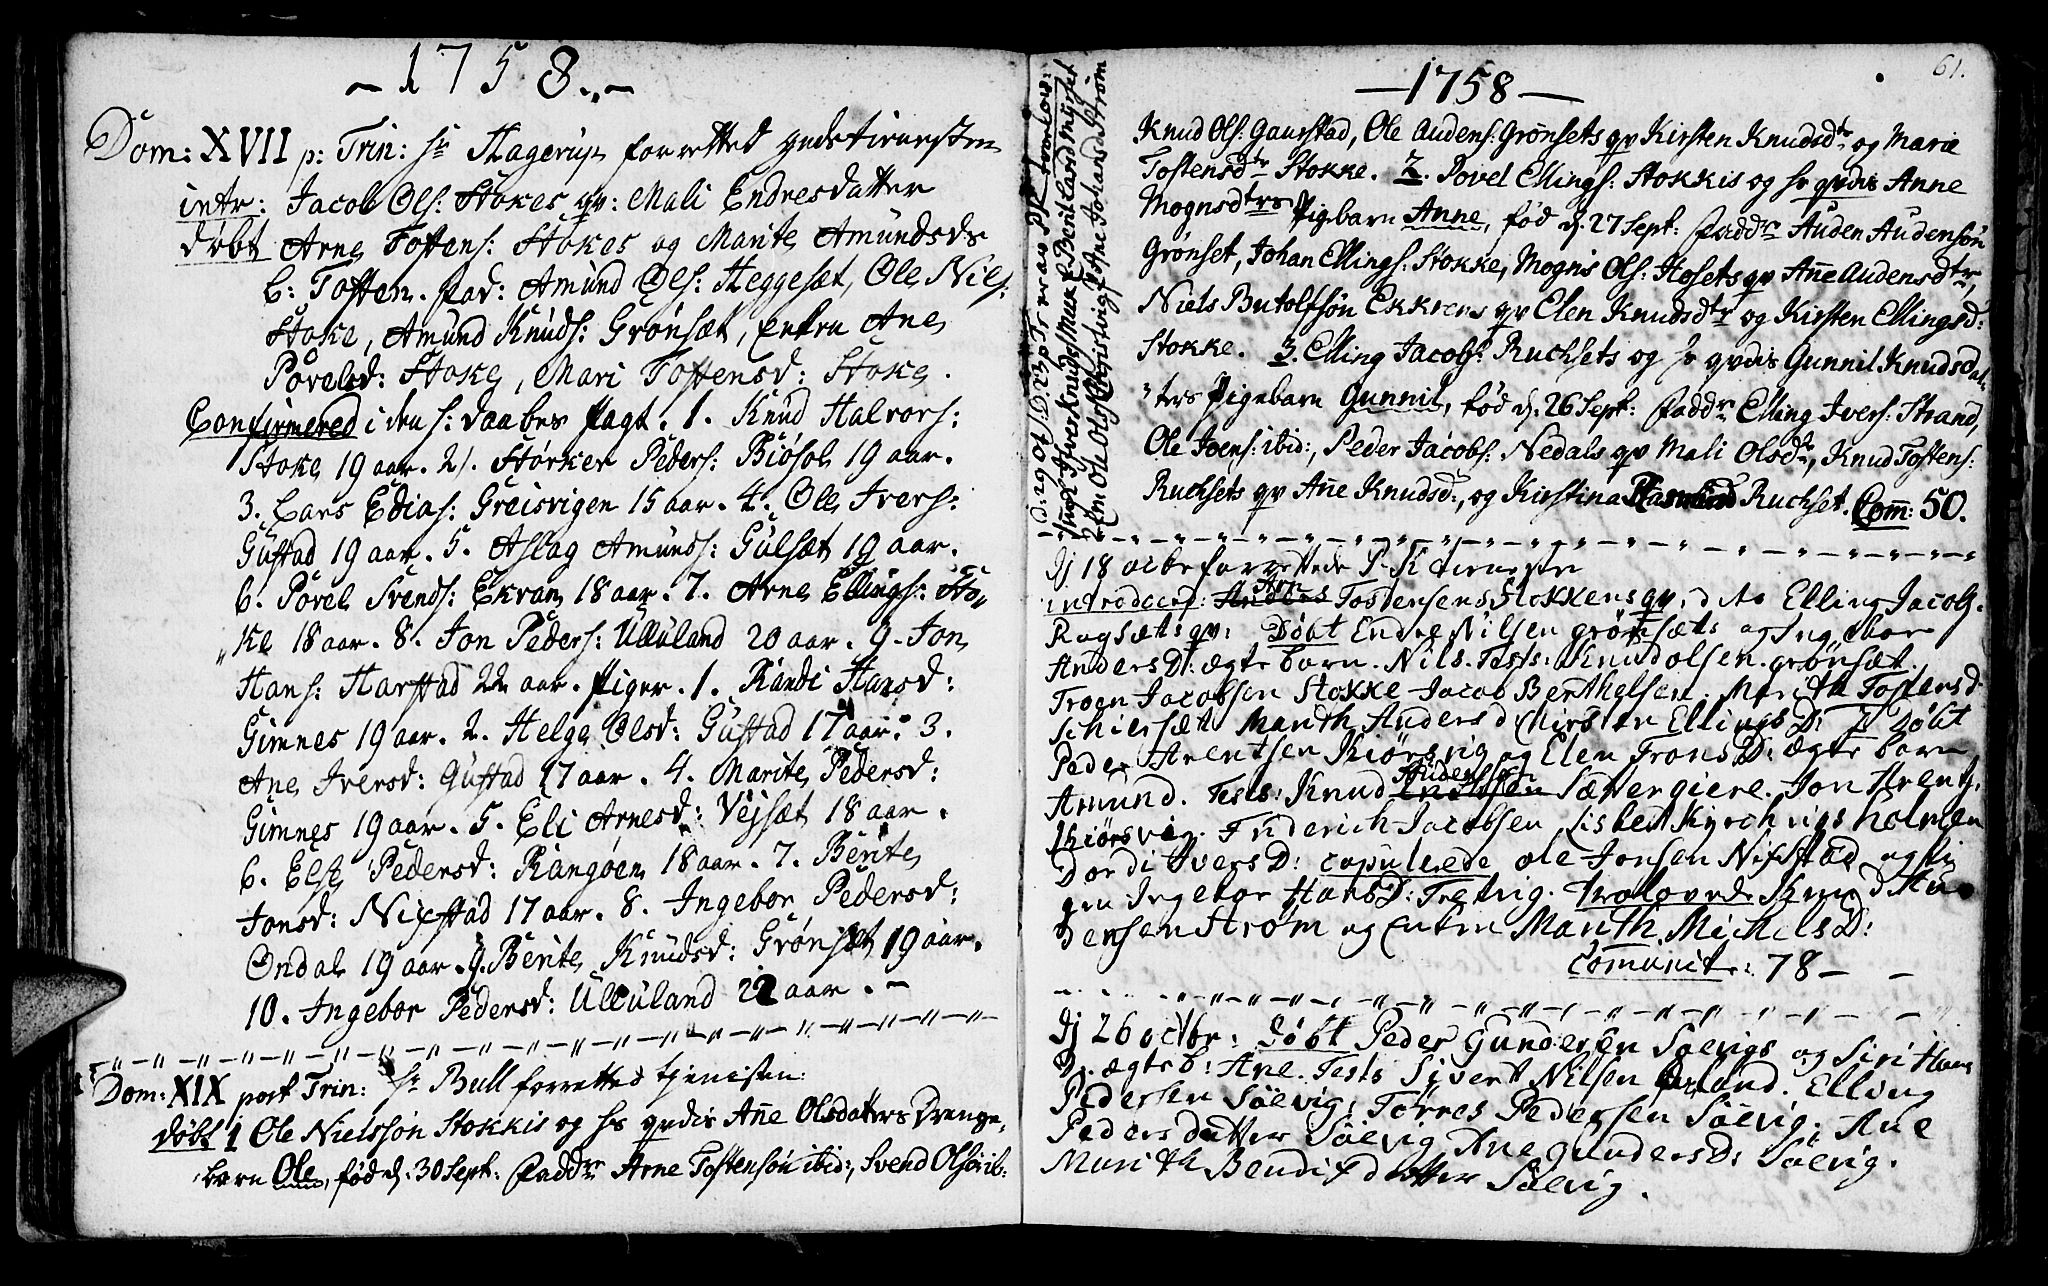 -1758.-
Dom: XVII p: Trin: hr Hagerup forretted
intr: Jacob Ols: Stokes qv: Mali Endresdatter
døbt Arne Tostens: Stokes og Marite Amundsds
b: Tosten. fad: Amund Ols: Heggeset, Ole Niels:
Stoke, Amund Knuds: Grönsæt, Enken Ane
Povelsd: Stoke, Mari Tostensd: Stoke.
Confirmered i den h: daabes Pagt. 1. Knud Halvors:
Stoke 19 aar. 2. Størker Peders: Biösol 19 aar.
3. Lars Edias: Greisvigen 15 aar. 4. Ole Ivers:
Gustad 19 aar. 5. Aslag Amunds: Gulsæt 19 aar.
6. Povel Svends: Ekran 18 aar. 7. Arne Ellings: Sto
ke 18 aar. 8. Jon Peders: Ulvuland 20 aar. 9. Jon
Hans: Harstad 22 aar. Piger. 1. Randi Hansd:
Gimnes 19 aar. 2. Helge Olsd: Gustad 17 aar. 3.
Ane Iversd: Gustad 17 aar. 4. Marite Pedersd:
Gimnes 19 aar. 5. Eli Arnesd: Vejsæt 18 aar.
6. Else Pedersd: Rangöen 18 aar. 7. Berite
Jonsd: Nixstad 17 aar. 8. Ingebor Pedersd:
Ondal 19 aar. 9. Berite Knudsd: Grönset 19 aar.
10. Ingebor Pedersd: Ulvuland 22 aar.
Dom: XIX post Trin: hr Bull forrettet tjenisten:
døbt 1 Ole Nielssøn Stokkis og hs qvdis Añe Olsdatters Drenge
barn Ole, fød d: 30 Sept: Faddr Arne Tostensøn ibid:, Svend Olsøn ib:
-1758-
61.
Knud Ols: Gaurstad, Ole Audens: Grønsets qv Kirsten Knudsdtr og Marie
Tostensdtr Stokke. 2. Povel Ellings: Stokkis og hs qvdis Anne
Mognsdtrs Pigebarn Anne, fød d: 27 Sept: Faddr Auden Audensøn
Grønset, Johan Ellings: Stokke, Mogns Ols: Hosets qv Añe Audensdtr,
Niels Butolfsøn Ekkrens qv Elen Knudsdtr og Kirsten Ellingsd:
Stokke. 3. Elling Jacobs: Ruchsets og hs qvdis Gunnil Knudsdat
ters Pigebarn Gunnil, fød d: 26 Sept: Faddr Elling Ivers: Strand,
Ole Joens: ibid:, Peder Jacobs: Nedals qv Mali Olsdtr, Knud Tostens:
Ruchsets qv Añe Knudsd:, og Kirstina Ruchset. Com: 50.
dj 18
introducer: Arn Tostensens Stokkens qv: dto Elling Jacobs.
Rugsæts qv: Døbt Endre Nilsen grönsæts og Ingebor
Anders D: ægte barn. Nils. Tests: Knud olsen. grönsæt.
Troen Jacobsen Stokke Jacob Berthelsen. Marith Tostens d
Schiersæt Marith Anders d Kirsten Ellings D: Døbt
Peder Arentsen Kiörsvig og Elen Trons D: ægte barn
Amund. Tests: Knud Audensen Sættergiere. Jon Arents.
Kiörsvig. Friderich Jacobsen, Lisbed holmen
Dordi Ivers D: copulerede ole Jonsen Nixstad og Pi
gen Ingebor Hans D: Tretvig. trolovede Knud Au
densen Strøm og Enken Marith Michels D:
Comunict: 78 -
dj 26 octbr: Døbt Peder Gundersen Söevigs og Siri Hans
D: ægte b: Ane. Tests Sivert Nilsen Ørland. Elling
Pedersen Söevig, Torres Pedersen Söevig. Ane
Pedersdatter Söevig Ane Gunders D: Söevig.
Marith Bendixdatter Söevig.